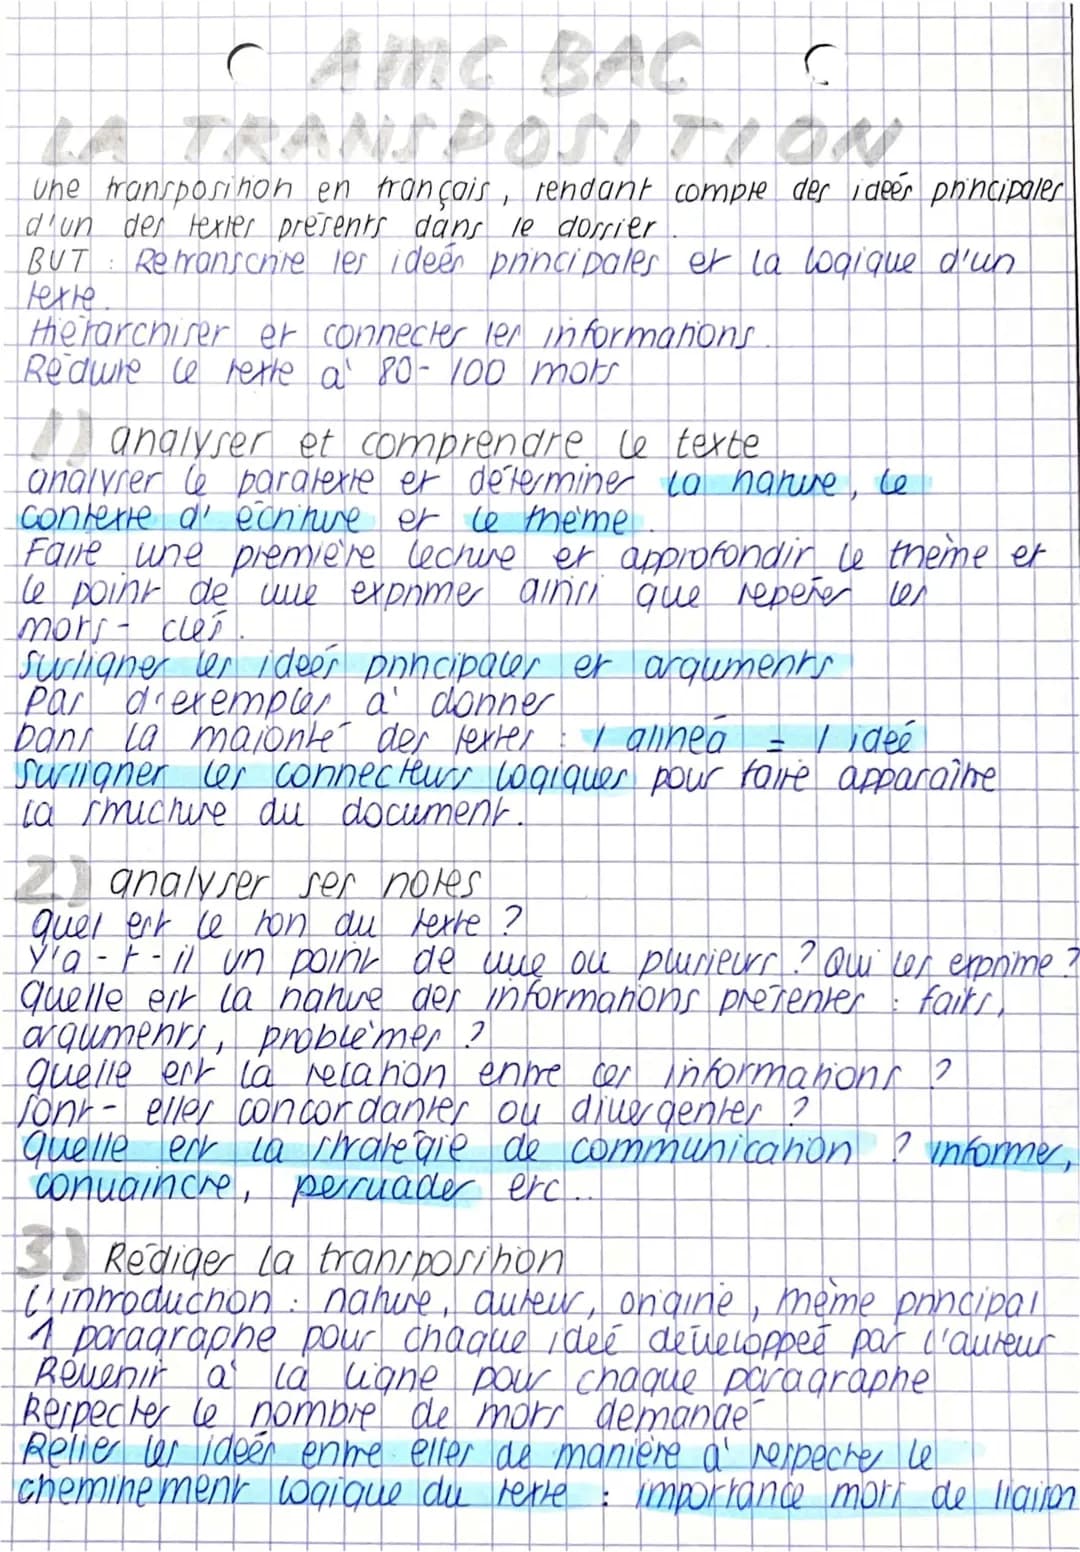 AMC BAC
LA TRANSPOSITION
une transposition en français, rendant compte des idées principales
d'un des textes présents dans le dossier.
BUT : Retranscrire les idées principales et la logique d'un
texte.
Hiérarchiser et connecter les informations.
Réduire le texte à 80-100 mots
1) analyser et comprendre le texte
analyser le paratexte et déterminer la nature, le
contexte d'écriture et le thème.
Faire une première lecture et approfondir le thème et
le point de vue exprimer ainsi que repérer les
mots-clés.
Surligner les idées principales et arguments
Pas d'exemples à donner
Dans la majorité des textes : 1 alinéa = 1 idée
Surligner les connecteurs logiques pour faire apparaître
la structure du document.
2) analyser ses notes
quel est le ton du texte ?
Y'a-t-il un point de vue ou plusieurs ? Qui les exprime ?
Quelle est la nature des informations présentes : faits,
arguments, problèmes ?
quelle est la relation entre ces informations ?
sont-elles concordantes ou divergentes ?
Quelle est la stratégie de communication ? informer,
convaincre, persuader etc...
3) Rédiger la transposition
L'introduction : nature, auteur, origine, thème principal
1 paragraphe pour chaque idée développée par l'auteur
Revenir à la ligne pour chaque paragraphe
Respecter le nombre de mots demandé
Relier les idées entre elles de manière à respecter le
cheminement logique du texte : importance mots de liaison